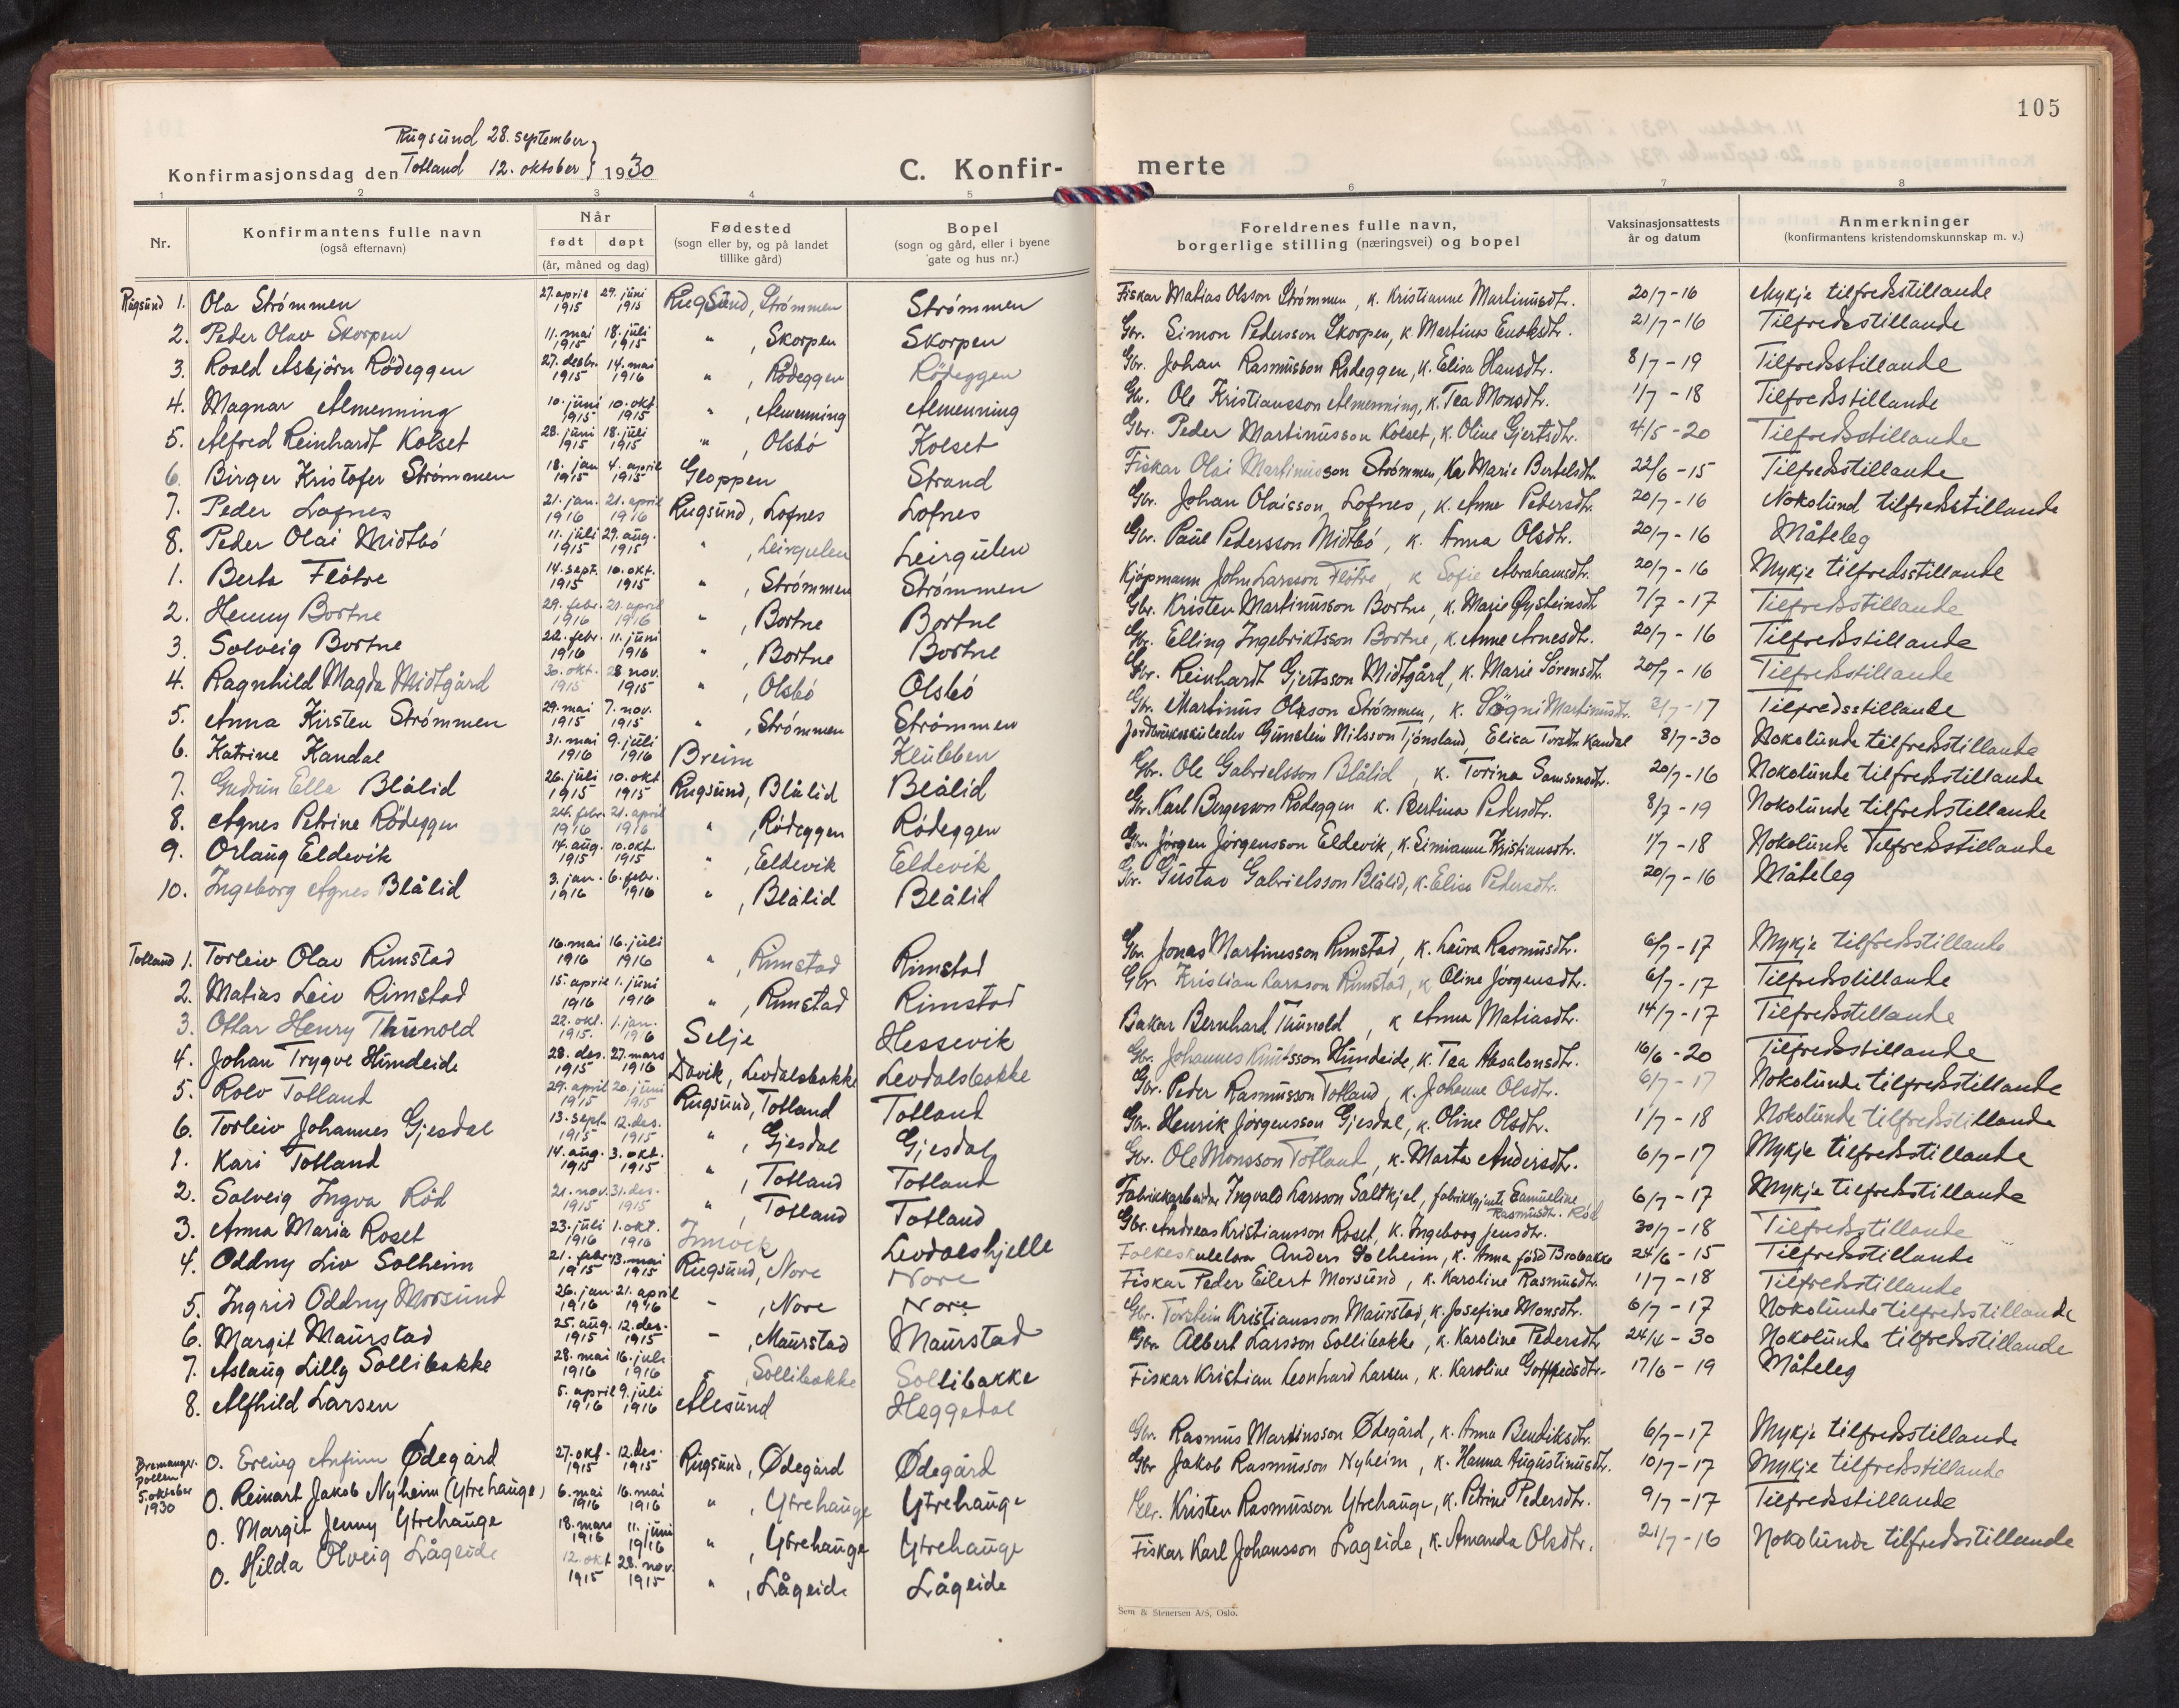 105
Rugsund 28. september
Konfirmasjonsdag den Totland 12. oktober } 1930
C. Konfir-
merte
1 2 3 4 5 6 7 8
Nr. Konfirmantens fulle navn (også efternavn) Når født døpt (år, måned og dag) Fødested (sogn eller by, og på landet tillike gård) Bopel (sogn og gård, eller i byene gate og hus nr.) Foreldrenes fulle navn, borgerlige stilling (næringsvei) og bopel Vaksinasjonsattests år og datum Anmerkninger (konfirmantens kristendomskunnskap m. v.)
Rugsund 1. Ola Strømmen 27. april 1915 29. juni 1915 Rugsund, Strømmen Strømmen Fiskar Matias Olsson Strømmen, k. Kristianne Martinusdtr. 20/7-16 Mykje tilfredsstillande
2. Peder Olav Skorpen 11. mai 1915 18. juli 1915 " , Skorpen Skorpen Gbr. Simon Pedersson Skorpen, k. Martina Enoksdtr. 21/7-16 Tilfredsstillande
3. Roald Asbjörn Rödeggen 27. desbr. 1915 14. mai 1916 " , Rödeggen Rödeggen Gbr. Johan Rasmusson Rödeggen, k. Elisa Hansdtr. 8/7-19 Tilfredsstillande
4. Magnar Almenning 10. juni 1915 10. okt. 1915 " , Almenning Almenning Gbr. Ole Kristiansson Almenning, k. Tea Monsdtr. 1/7-18 Tilfredsstillande
5. Alfred Reinhardt Kolset 28. juni 1915 18. juli 1915 " , Olsbö Kolset Gbr. Peder Martinusson Kolset, k. Oline Gjertsdtr. 4/5-20 Tilfredsstillande
6. Birger Kristofer Strömmen 18. jan 1915 4. april 1915 Gloppen Strand Fiskar Olai Martinusson Strømmen, Ka Marie Bertelsdtr. 22/6-15 Tilfredsstillande
7. Peder Lofnes 21. jan. 1916 21. april 1916 Rugsund, Lofnes Lofnes Gbr. Johan Olaisson Lofnes, k. Anne Pedersdtr. 20/7-16 Nokolund tilfredsstillande
8. Peder Olai Midtbö 11. juli 1915 29. aug. 1915 " , Leirgulen Leirgulen Gbr. Paul Pedersson Midtbö, k. Anna Olsdtr. 20/7-16 Måteleg
1. Berta Flötre 14. sept. 1915 10. okt. 1915 " , Strømmen Strømmen Kjöpmann John Larsson Flötre, k Sofie Abrahamsdtr. 20/7-16 Mykje tilfredsstillande
2. Henny Bortne 29. febr. 1916 21. april 1916 " , Bortne Bortne Gbr. Kristen Martinusson Bortne, k. Marie Øysteinsdtr 7/7-17 Tilfredsstillande
3. Solveig Bortne 22. febr. 1916 11. juni 1916 " , Bortne Bortne Gbr. Elling Ingebriktsson Bortne, k. Anne Arnesdtr. 20/7-16 Tilfredsstillande
4. Ragnhild Magda Midtgård 30. okt. 1915 28 nov. 1915 " , Olsbö Olsbö Gbr. Reinhardt Gjertsson Midtgård, k. Marie Sörensdtr. 20/7-16 Tilfredsstillande
5. Anna Kirsten Strömmen 29. mai 1915 7. nov. 1915 " , Strömmen Strömmen Gbr. Martinus Olsson Strömmen, k. Sögni Martinusdtr. 2/7-17 Tilfredsstillande
6. Katrine Kandal 31. mai 1916 9. juli 1916 Breim Klubben Jordbruksskuleelev Gunstein Nilsson Tjönsland, Elisa Torsdtr. Kandal 8/7-30 Nokolunde tilfredsstillande
7. Gudrun Ella Blålid 26. juli 1915 10. okt 1915 Rugsund, Blålid Blålid Gbr. Ole Gabrielsson Blålid, k. Torina Samsonsdtr. 20/7-16 Nokolunde tilfredsstillande
8. Agnes Petrine Rödeggen 24. febr. 1916 21. april 1916 " , Rödeggen Rödeggen Gbr. Karl Bergesson Rödeggen k. Bertina Pedersdtr. 8/7-19 Nokolunde tilfredsstillande
9. Orlaug Eldevik 14. aug. 1915 10. okt. 1915 " , Eldevik Eldevik Gbr. Jörgen Jörgensson Eldevik, k. Simianne Kristiansdtr. 1/7-18 Nokolunde Tilfredsstillande
10. Ingeborg Agnes Blålid 3. jan. 1916 6. febr. 1916 " , Blålid Blålid Gbr. Gustav Gabrielsson Blålid, k. Elisa Pedersdtr. 20/7-16 Måteleg
Totland 1. Torleiv Olav Rimstad 16. mai 1916 16. juli 1916 " , Rimstad Rimstad Gbr. Jonas Martinusson Rimstad, k. Laura Rasmusdtr. 6/7-17 Mykje tilfredsstillande
2. Matias Leiv Rimstad 15. april 1916 1. juni 1916 " , Rimstad Rimstad Gbr. Kristian Larsson Rimstad, k Oline Jörgensdtr. 6/7-17 Tilfredsstillande
3. Ottar Henry Thunold 22. okt. 1915. 1. jan. 1916 Selje Hessevik Bakar Bernhard Thunold, k Anna Matiasdtr. 14/7-17 Tilfredsstillande
4. Johan Trygve Hundeide 28. des. 1915 27. mars 1916 Davik, Levdalsbakke Levdalsbakke Gbr. Johannes Knutsson Hundeide, k. Tea Absalonsdtr. 16/6-20 Tilfredsstillande
5. Rolv Totland 29. april 1915 20. juni 1915 Rugsund, Totland Totland Gbr. Peder Rasmusson Totland, k. Johanne Olsdtr. 6/7-17 Nokolunde tilfredsstillande
6. Torleiv Johannes Gjesdal 13. sept. 1915 12. des. 1915 " , Gjesdal Gjesdal Gbr. Henrik Jörgensson Gjesdal, k. Oline Olsdtr. 1/7-18 Nokolunde tilfredsstillande
1. Kari Totland 14. aug. 1915 3. okt. 1915 " , Totland Totland Gbr. Ole Monsson Totland, k. Marta Andersdtr. 6/7-17 Mykje tilfredsstillande
2. Solveig Ingva Röd 21. nov. 1915 31. des. 1915 " , Totland Totland Fabrikkarbeidar Ingvald Larsson Saltkjel, fabrikkgjente Samueline Rasmusdtr. Röd 6/7-17 Mykje tilfredsstillande
3. Anna Maria Roset 23. juli 1916 1. okt. 1916 Innvik Levdalshjelle Gbr. Andreas Kristiansson Roset, k. Ingeborg Jensdtr. 30/7-18 Tilfredsstillande
4. Oddny Liv Solheim 21. febr 1915 13. mai 1915 Rugsund, Nore Nore Folkeskulelærar Anders Solheim, k. Anna född Brobakke 24/6-15 Tilfredsstillande
5. Ingrid Oddny Morsund 26. jan. 1916 21. april 1916 - , Nore Nore Fiskar Peder Eilert Morsund, k. Karoline Rasmusdtr. 1/7-18 Tilfredsstillande
6. Margit Maurstad 25. aug. 1915 12. des. 1915 - , Maurstad Maurstad Gbr. Torstein Kristiansson Maurstad, k. Josefine Monsdtr. 6/7-17 Nokolunde tilfredsstillande
7. Aslaug Lilly Sollibakke 28. mai 1916 16. juli 1916 " , Sollibakke Sollibakke Gbr. Albert Larsson Sollibakke, k. Karoline Pedersdtr 24/6-30 Nokolunde tilfredsstillande
8. Alfhild Larsen 5. april 1916 9. juli 1916 Ålesund Heggedal Fiskar Kristian Leonhard Larsen, k. Karoline 17/6-19 Måteleg
Bremangerpollen 5. oktober 1930
0. Erling Anfinn Ødegård 27. okt. 1915 12. des. 1915 Rugsund, Ødegård Ødegård Gbr. Rasmus Martinsson Ødegård, k. Anna Bendiksdtr. 6/7-17 Mykje tilfredsstillande
0. Reinart Jakob Nyheim (Ytrehauge) 6. mai 1916 16. mai 1916 " , Ytrehauge Ytrehauge Gbr Jakob Rasmusson Nyheim, k. Hanna Augustinusdtr. 10/7-17 Mykje tilfredsstillande
0. Margit Jenny Ytrehauge 18. mars 1916 11. juni 1916 " , Ytrehauge Ytrehauge Gbr. Kristen Rasmusson Ytrehauge, k. Petrine Pedersdtr. 9/7-17 Tilfredsstillande
0. Hilda Olveig Lågeide 12. okt 1915 28. nov. 1915 " , Lågeide Lågeide Fiskar Karl Johansson Lågeide, k. Amanda Olsdtr. 21/7-16 Nokolunde tilfredsstillande
Sem & Stenersen A/S, Oslo.